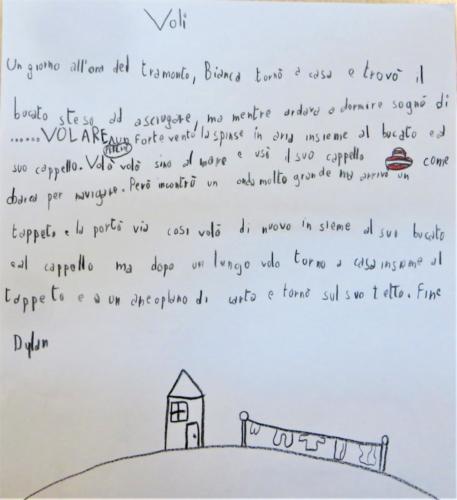 Voli
Un giorno all'ora del tramonto, Bianca tornò a casa e trovò il
bucato steso ad asciugare, ma mentre andava a dormire sognò di
......VOLARE un forte vento la spinse in aria insieme al bucato ed
suo cappello. Volò volò sino al mare e usò il suo cappello come
barca per navigare. Però incontrò un onda molto grande ma arrivò un
tappeto e la portò via così volò di nuovo insieme al suo bucato
e al cappello ma dopo un lungo volo torno a casa insieme al
tappeto e a un aneoplano di carta e tornò sul suo tetto. Fine
Dylan